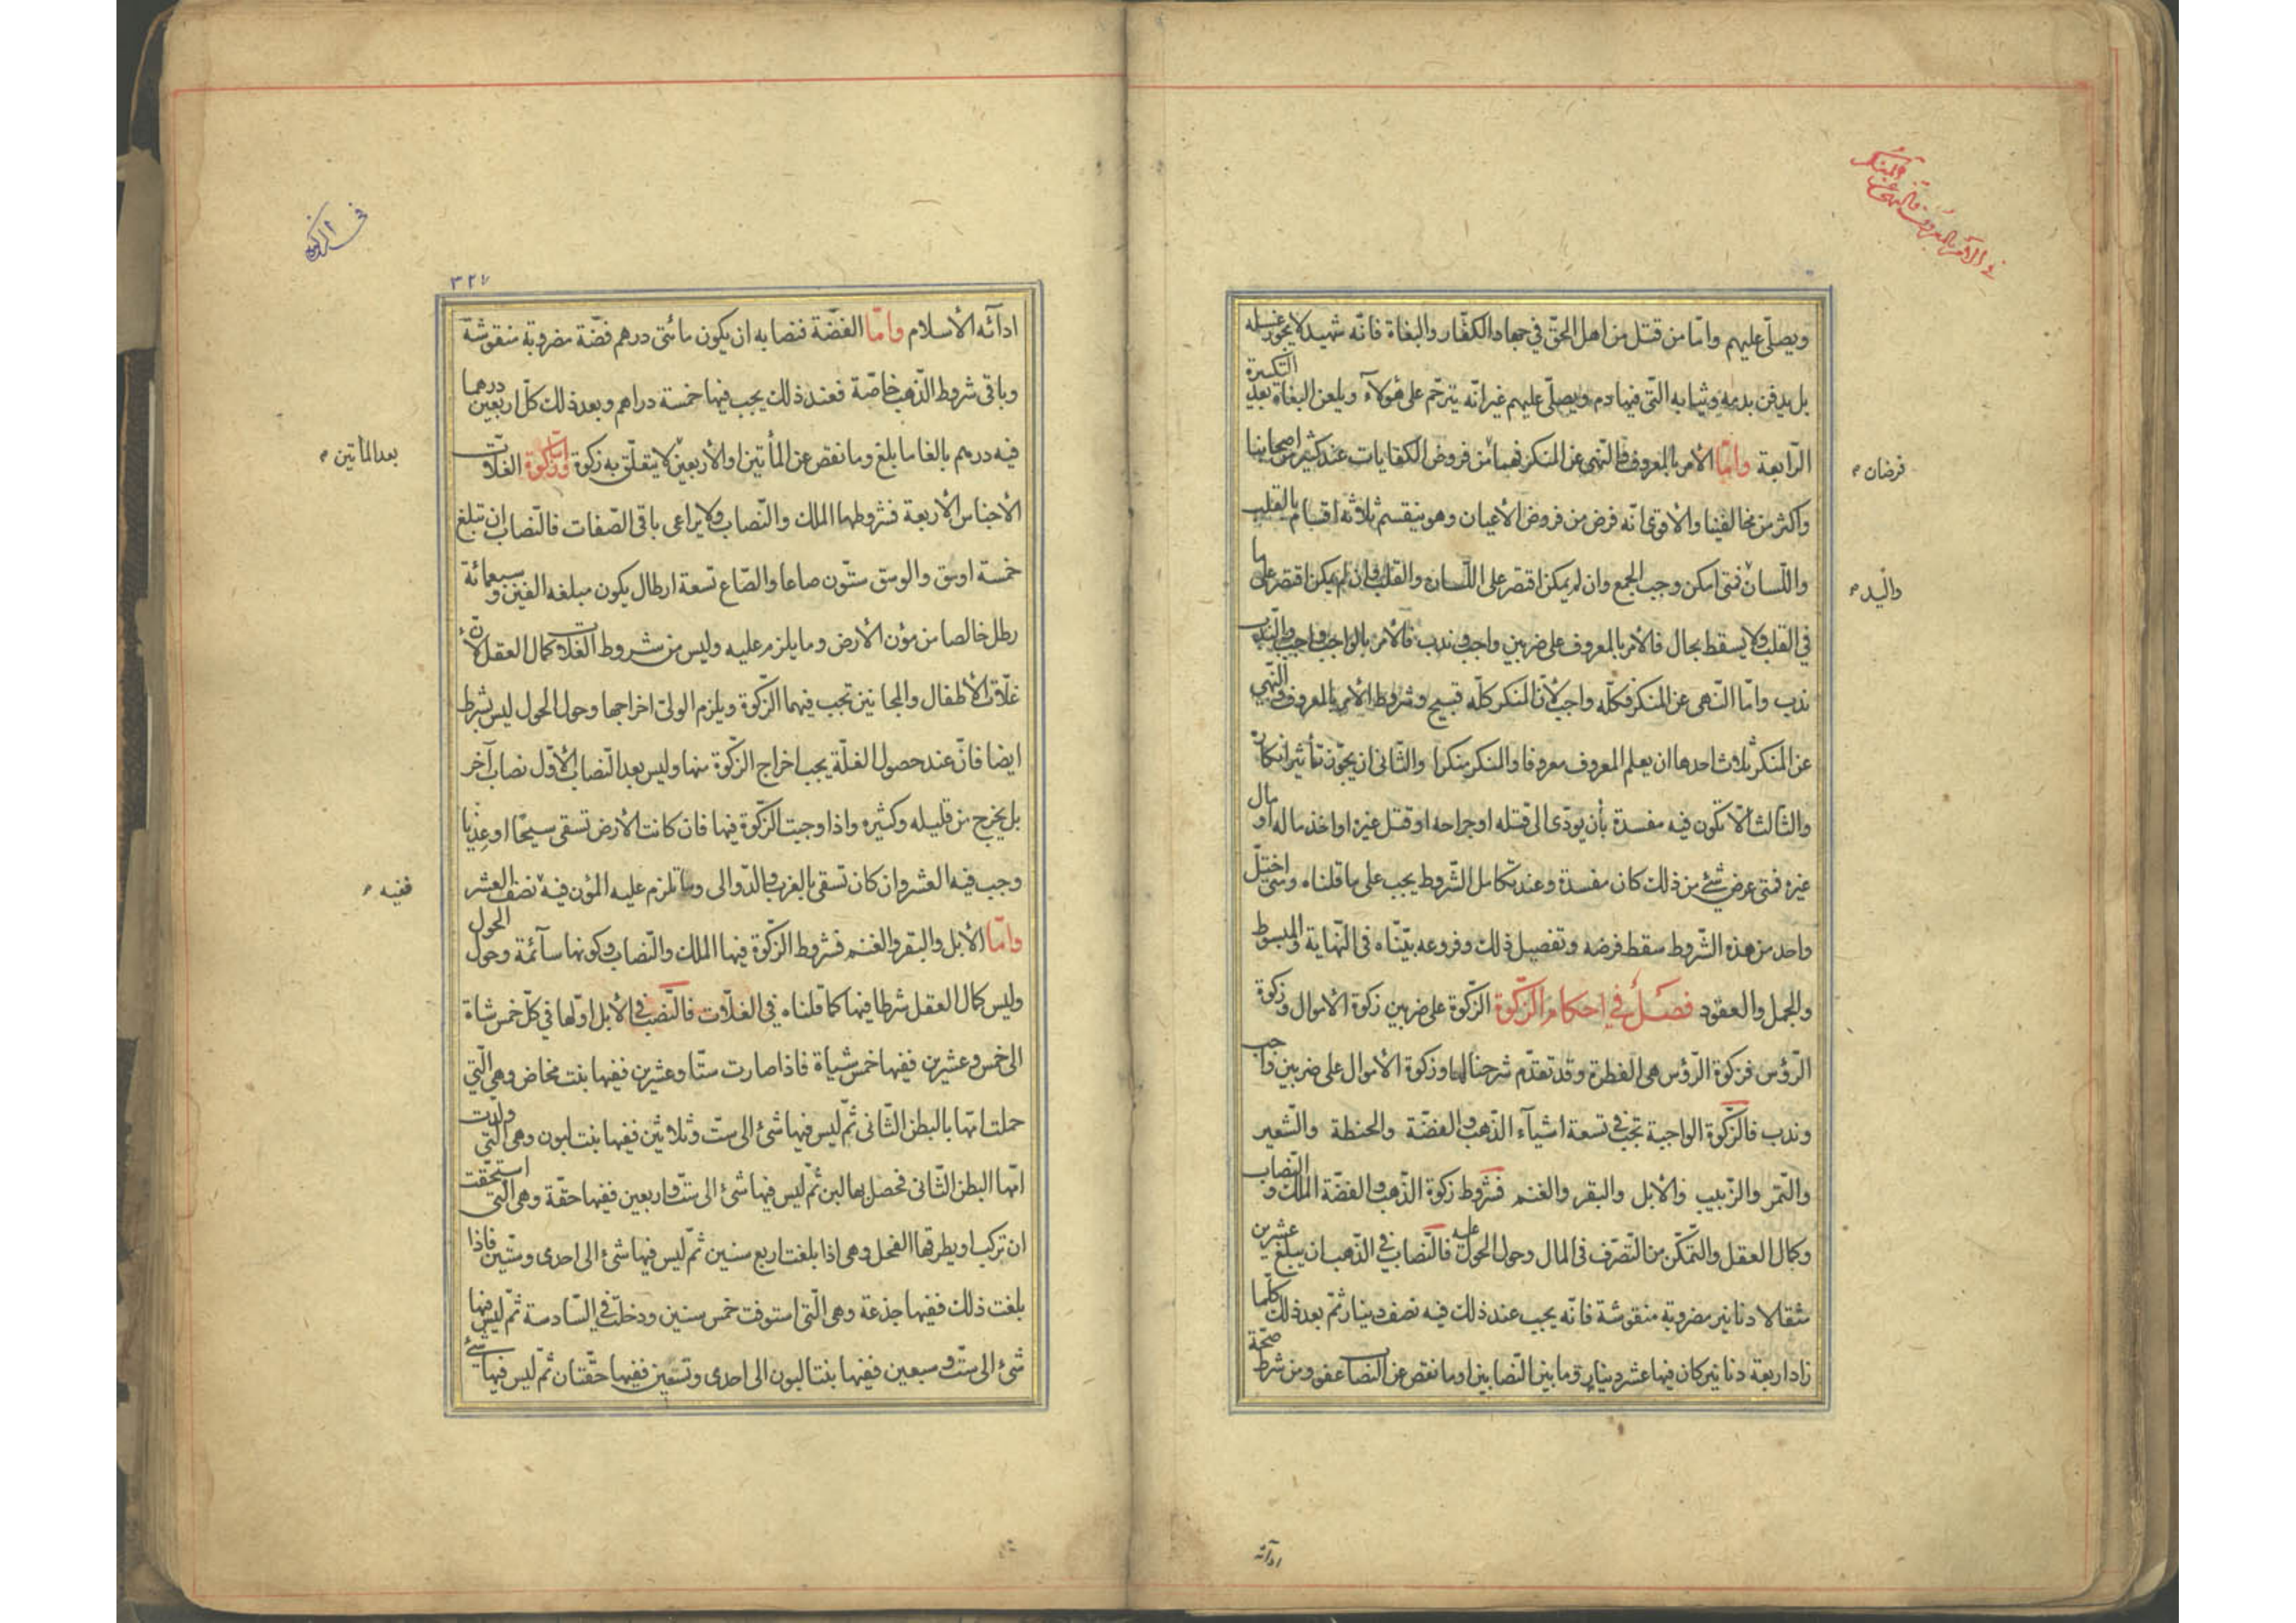 في الأمر بالمعروف والنهي عن
المنكر
ويصلّى عليهم وامّا من قتل من اهل الحقّ في جهاد الكفّار والبغاة فانّه شهيد لا يجوز غسله
بل يدفن بدمه وثيابه الّتى فيها دم ويصلّى عليهم غير انّه يترحّم على هؤلآء ويلعن البغاة بعد التكبيرة
الرّابعة وامّا الأمر بالمعروف والنّهى عن المنكر فهما من فروض الكفايات عند كثير من اصحابنا
فرضان
واكثر من مخالفينا والأقوى انّه فرض من فروض الأعيان وهو ينقسم ثلاثة اقسام بالقلب
واللّسان فمتى امكن وجب الجمع وان لم يمكن اقتصر على اللّسان والقلب فان لم يمكن اقتصر على ما
واليد
في القلب ولا يسقط بحال فالأمر بالمعروف على ضربين واجب وندب فالأمر بالواجب واجب والنّدب
ندب وامّا النّهى عن المنكر فكلّه واجب لأنّ المنكر كلّه قبيح وشروط الأمر بالمعروف والنّهي
عن المنكر ثلاث احدها ان يعلم المعروف معروفا والمنكر منكرا والثّانى ان يجوّز تأثير انكاره
والثّالث الّا تكون فيه مفسدة بأن يودّى الى قتله او جراحه او قتل غيره او اخذ ماله او مال
غيره فمتى عرض شئ من ذلك كان مفسدة وعند تكامل الشّروط يجب على ما قلناه ومتى اختلّ
واحد من هذه الشّروط سقط فرضه وتفصيل ذلك وفروعه بيّنّاه فى النّهاية والمبسوط
والجمل والعقود فصل في احكام الزّكوة الزّكوة على ضربين زكوة الأموال وزكوة
الرّؤس فزكوة الرّؤس هى الفطرة وقد تقدّم شرحنا لها وزكوة الأموال على ضربين واجب
وندب فالزّكوة الواجبة تجب في تسعة اشيآء الذّهب والفضّة والحنطة والشّعير
والتّمر والزّبيب والأبل والبقر والغنم فشروط زكوة الذّهب والفضّة الملك والنّصاب
وكمال العقل والتمكّن من التّصرّف فى المال وحول الحول عليه فالنّصاب في الذّهب ان يبلغ عشرين
مثقالا دنانير مضروبة منقوشة فانّه يجب عند ذلك فيه نصف دينار ثمّ بعد ذلك كلّما
زاد اربعة دنانير كان فيها عشر دينار وما بين النّصابين او ما نقص عن النّصاب عفو ومن شرط صحّة
ادآئه
في الزكوة
٣٢٧
ادآئه الأسلام وامّا الفضّة فنصابه ان يكون مائتى درهم فضّة مضروبة منقوشة
وباقى شروط الذّهب خاصّة فعند ذلك يجب فيها خمسة دراهم وبعد ذلك كلّ اربعين درهما
فيه درهم بالغا ما بلغ وما نقص عن المأتين او الأربعين لا يتعلّق به زكوة وامّا زكوة الغلّات
بعد المأتين
الأجناس الأربعة فشروطها الملك والنّصاب ولا يراعى باقى الصّفات فالنّصاب ان تبلغ
خمسة اوسق والوسق ستّون صاعا والصّاع تسعة ارطال يكون مبلغه الفين وسبعمائة
رطل خالصا من مؤن الأرض وما يلزم عليه وليس من شروط الغلات كمال العقل لأنّ
غلّات الأطفال والمجانين تجب فيهما الزّكوة ويلزم الولىّ اخراجها وحول الحول ليس بشرط
ايضا فانّ عند حصول الغلّة يجب اخراج الزّكوة منها وليس بعد النّصاب الأوّل نصاب آخر
بل يخرج من قليله وكثيره واذا وجبت الزّكوة فيها فان كانت الأرض تسقى سيحا او عذيا
وجب فيه العشر وان كان تسقى بالغرب والدّوالى وما تلزم عليه المؤن فيه نصف العشر
ففيه
وامّا الأبل والبقر والغنم فشروط الزّكوة فيها الملك والنّصاب وكونها سآئمة وحول الحول
وليس كمال العقل شرطا فيها كما قلناه في الغلّات فالنّصب في الأبل اوّلها في كلّ خمس شاة
الى خمس وعشرين ففيها خمس شياة فاذا صارت ستّا وعشرين ففيها بنت مخاض وهى الّتي
حملت امّها بالبطن الثّانى ثمّ ليس فيها شئ الى ستّ وثلاثين ففيها بنت لبون وهى الّتي ولدت
امّها البطن الثّانى فحصل بها لبن ثمّ ليس فيها شئ الى ستّ واربعين ففيها حقّة وهى الّتى استحقّت
ان تركب او يطرقها الفحل وهى اذا بلغت اربع سنين ثمّ ليس فيها شئ الى احدى وستّين فاذا
بلغت ذلك ففيها جذعة وهى الّتى استوفت خمس سنين ودخلت في السّادسة ثمّ ليس فيها
شئ الى ستّ وسبعين ففيها بنتا لبون الى احدى وتسعين ففيها حقّتان ثمّ ليس فيها شئ